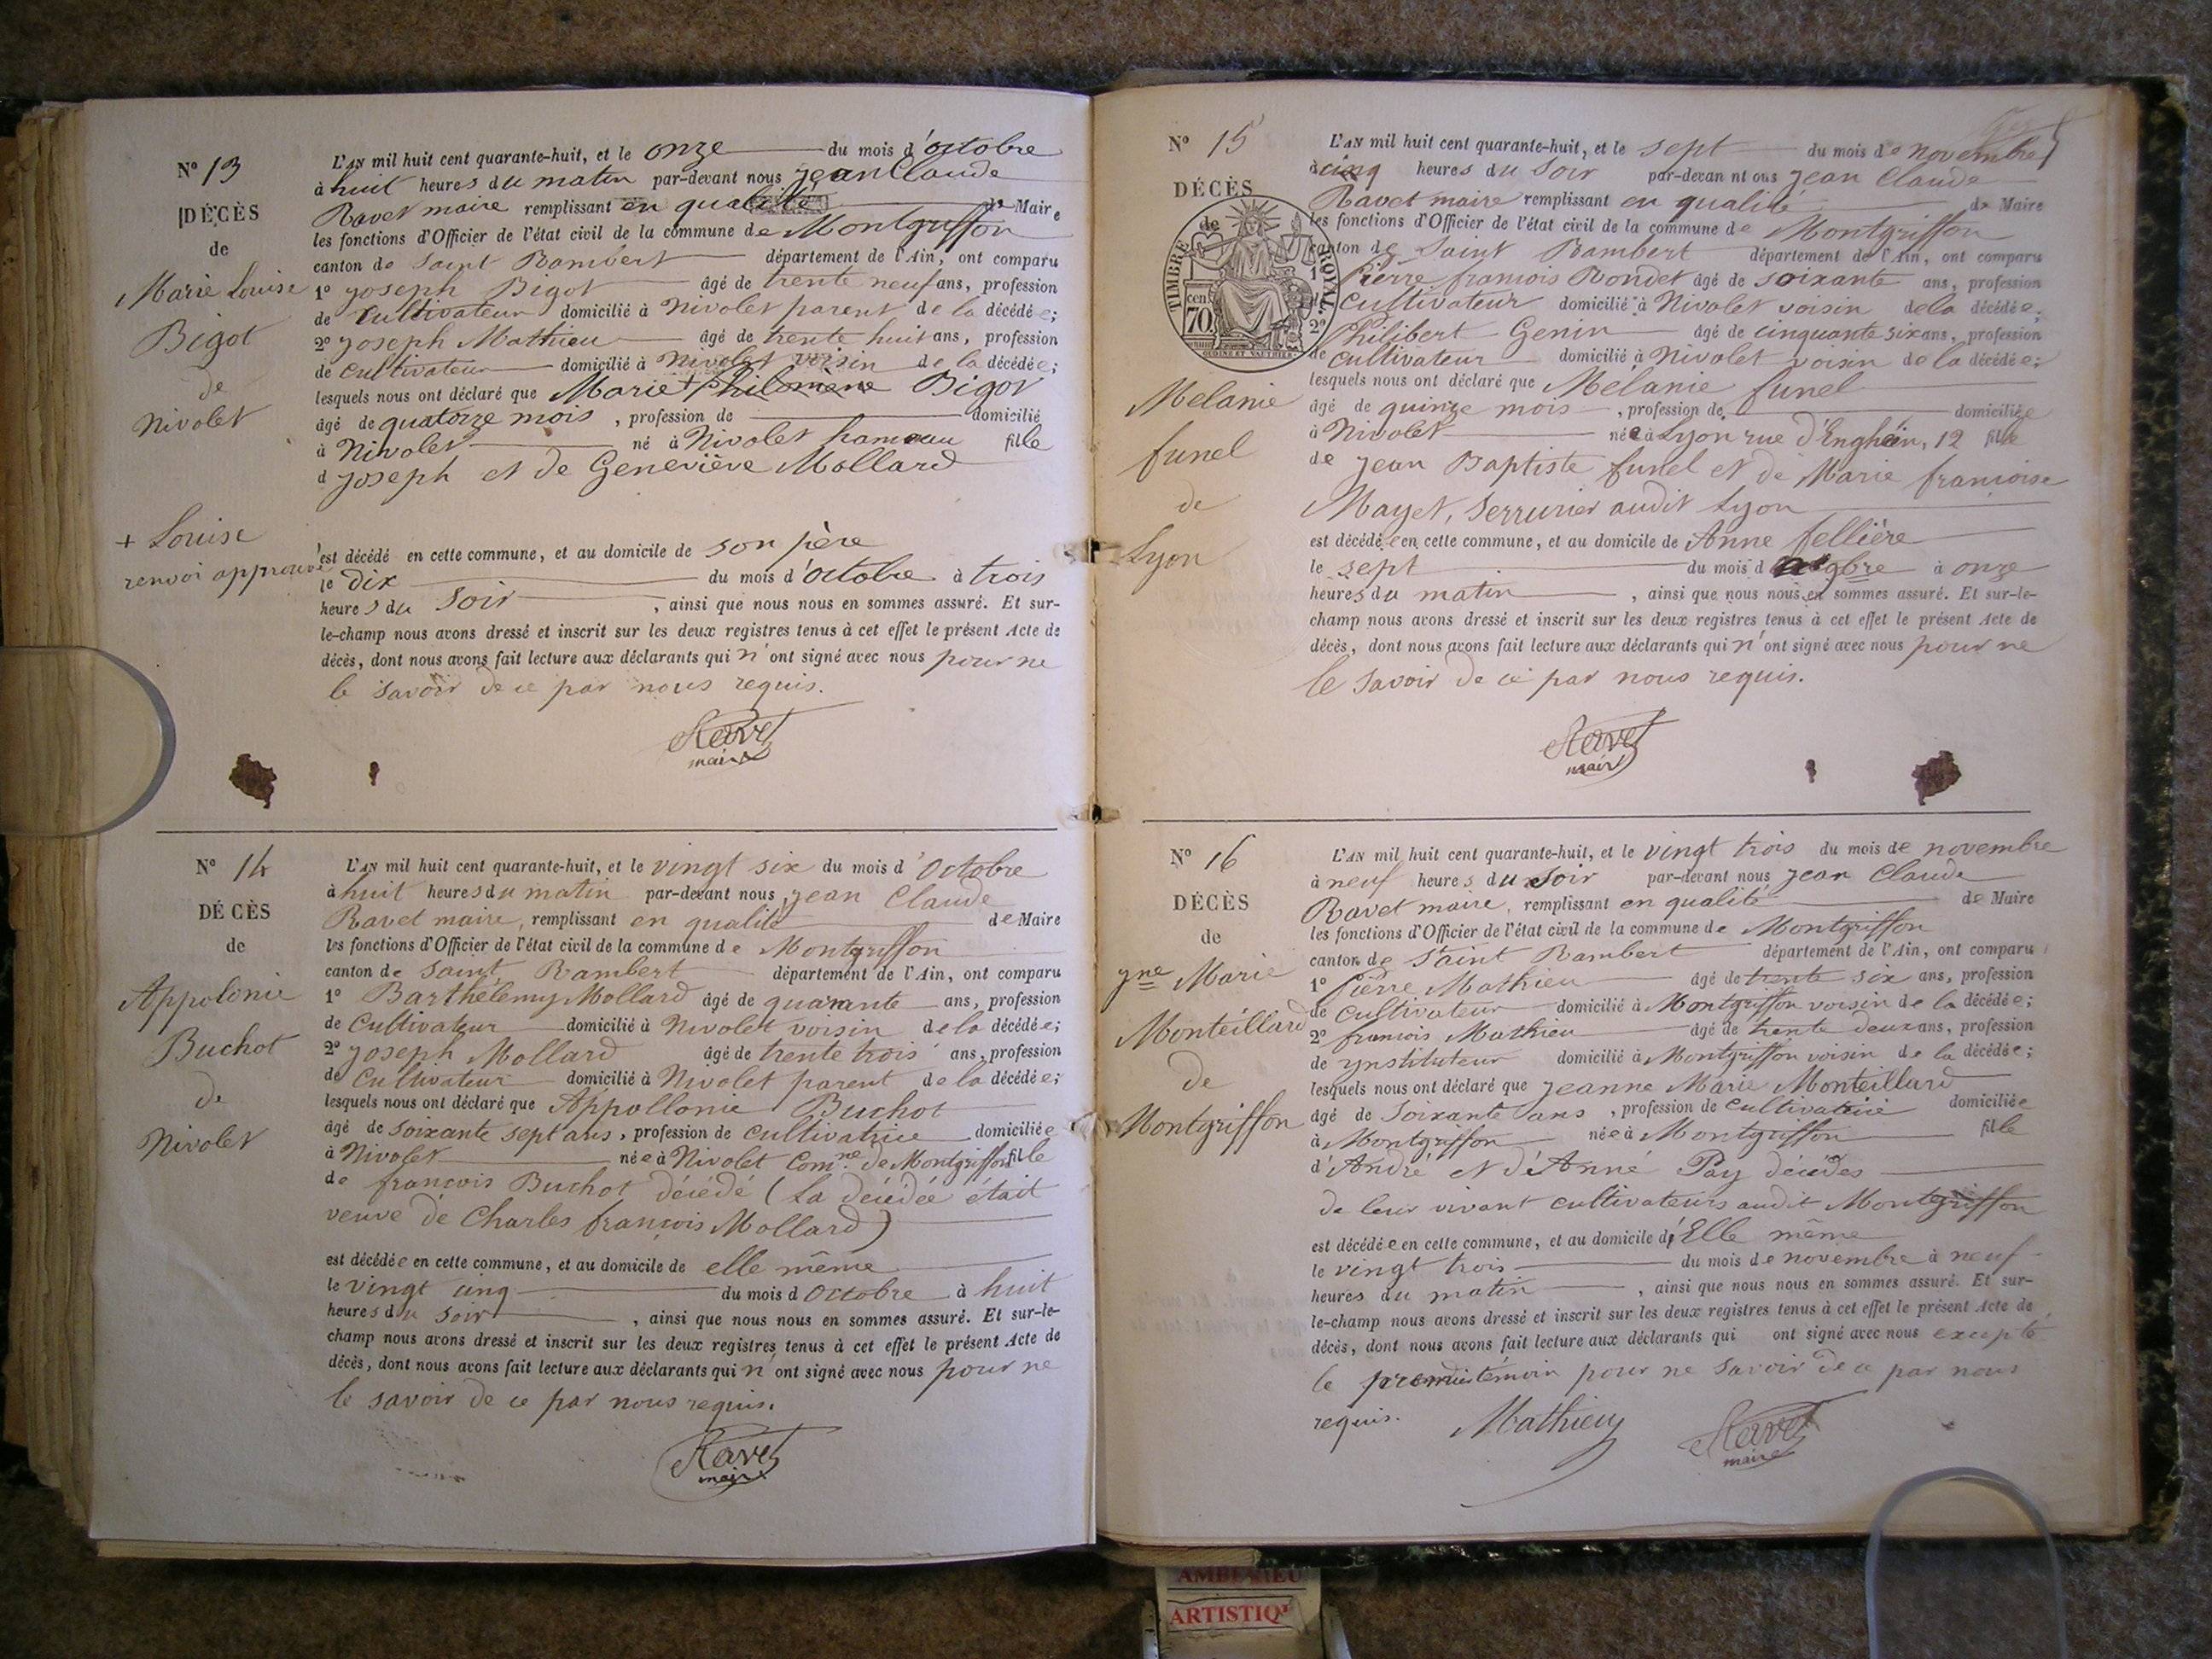 N° 13
DÉCÈS
de
Marie Louise
Bigot
de
Nivolet
+ Louise
renvoi approuvé
L'AN mil huit cent quarante-huit, et le onze du mois d'octobre
à huit heures du matin par-devant nous Jean Claude
Ravet maire remplissant en qualité de Maire
les fonctions d'Officier de l'état civil de la commune de Montgriffon
canton de Saint Rambert département de l'Ain, ont comparu
1° Joseph Bigot âgé de trente neuf ans, profession
de Cultivateur domicilié à Nivolet parent de la décédée;
2° Joseph Mathieu âgé de trente huit ans, profession
de Cultivateur domicilié à Nivolet voisin de la décédée;
lesquels nous ont déclaré que Marie + Philomene Bigot
âgé de quatorze mois, profession de domicilié
à Nivolet né à Nivolet hameau fille
d Joseph et de Geneviève Mollard
est décédé en cette commune, et au domicile de son père
le dix du mois d'octobre à trois
heures du Soir, ainsi que nous nous en sommes assuré. Et sur-
le-champ nous avons dressé et inscrit sur les deux registres tenus à cet effet le présent Acte de
décès, dont nous avons fait lecture aux déclarants qui n'ont signé avec nous pour ne
le savoir de ce par nous requis.
Ravet
maire
N° 14
DÉCÈS
de
Appolonie
Buchot
de
Nivolet
L'AN mil huit cent quarante-huit, et le vingt six du mois d'Octobre
à huit heures du matin par-devant nous Jean Claude
Ravet maire, remplissant en qualité de Maire
les fonctions d'Officier de l'état civil de la commune de Montgriffon
canton de Saint Rambert département de l'Ain, ont comparu
1° Barthélemy Mollard âgé de quarante ans, profession
de Cultivateur domicilié à Nivolet voisin de la décédée;
2° Joseph Mollard âgé de trente trois ans, profession
de Cultivateur domicilié à Nivolet parent de la décédée;
lesquels nous ont déclaré que Appollonie Buchot
âgé de soixante sept ans, profession de cultivatrice domiciliée
à Nivolet née à Nivolet Com.ne de Montgriffon fille
de françois Buchot décédé (la décédée était
veuve de Charles françois Mollard)
est décédée en cette commune, et au domicile de elle même
le vingt cinq du mois d Octobre à huit
heures du soir, ainsi que nous nous en sommes assuré. Et sur-le-
champ nous avons dressé et inscrit sur les deux registres tenus à cet effet le présent Acte de
décès, dont nous avons fait lecture aux déclarants qui n'ont signé avec nous pour ne
le savoir de ce par nous requis.
Ravet
maire
N° 15
DÉCÈS
de
TIMBRE ROYAL.
1 cen 70
1
Melanie
funel
de
Lyon
L'AN mil huit cent quarante-huit, et le sept du mois de novembre
à cinq heures du Soir par-devan nt ous Jean Claude
Ravet maire remplissant en qualité de Maire
les fonctions d'Officier de l'état civil de la commune de Montgriffon
canton de Saint Rambert département de l'Ain, ont comparu
Pierre francois Rondet âgé de soixante ans, profession
de Cultivateur domicilié à Nivolet voisin de la décédée;
2° Philibert Genin âgé de cinquante six ans, profession
de cultivateur domicilié à Nivolet voisin de la décédée;
lesquels nous ont déclaré que Mélanie funel
âgé de quinze mois, profession de domiciliée
à Nivolet née à Lyon rue d'Enghein, 12 fille
de Jean Baptiste funel et de Marie francoise
Mayet, Serrurier audit Lyon
est décédée en cette commune, et au domicile de Anne fellière
le sept du mois d 9bre à onze
heures du matin, ainsi que nous nous en sommes assuré. Et sur-le-
champ nous avons dressé et inscrit sur les deux registres tenus à cet effet le présent Acte de
décès, dont nous avons fait lecture aux déclarants qui n'ont signé avec nous pour ne
le savoir de ce par nous requis.
Ravet
maire
N° 16
DÉCÈS
de
jne Marie
Monteillard
de
Montgriffon
L'AN mil huit cent quarante-huit, et le vingt trois du mois de novembre
à neuf heures du Soir par-devant nous Jean Claude
Ravet maire, remplissant en qualité de Maire
les fonctions d'Officier de l'état civil de la commune de Montgriffon
canton de Saint Rambert département de l'Ain, ont comparu
1° Pierre Mathieu âgé de trente six ans, profession
de cultivateur domicilié à Montgriffon voisin de la décédée;
2° francois Mathieu âgé de trente deux ans, profession
de ynstituteur domicilié à Montgriffon voisin de la décédée;
lesquels nous ont déclaré que Jeanne Marie Monteillard
âgé de soixante ans, profession de cultivatrice domiciliée
à Montgriffon née à Montgriffon fille
d'André et d'Anne Pay décédés
de leur vivant cultivateurs audit Montgriffon
est décédée en cette commune, et au domicile d'Elle même
le vingt trois du mois de novembre à neuf
heures du matin, ainsi que nous nous en sommes assuré. Et sur-
le-champ nous avons dressé et inscrit sur les deux registres tenus à cet effet le présent Acte de
décès, dont nous avons fait lecture aux déclarants qui ont signé avec nous excepté
le premier témoin pour ne savoir de ce par nous
requis. Mathieu Ravet
maire
AMBERIEU
ARTISTIQ